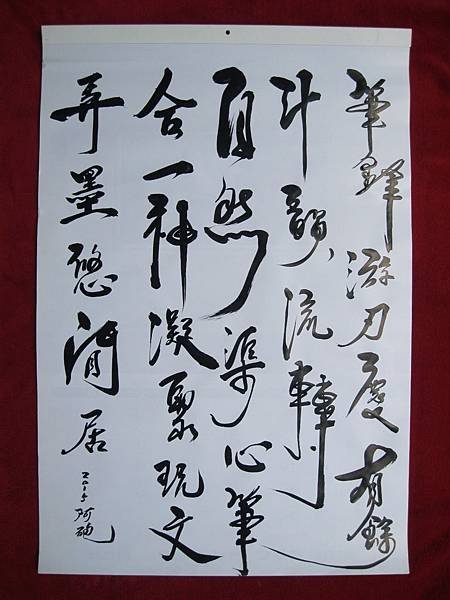 筆鋒游刃度有餘
斗韻流轉
自然渠心筆
合一神凝聚玩文
弄墨悠閒居
2015 阿